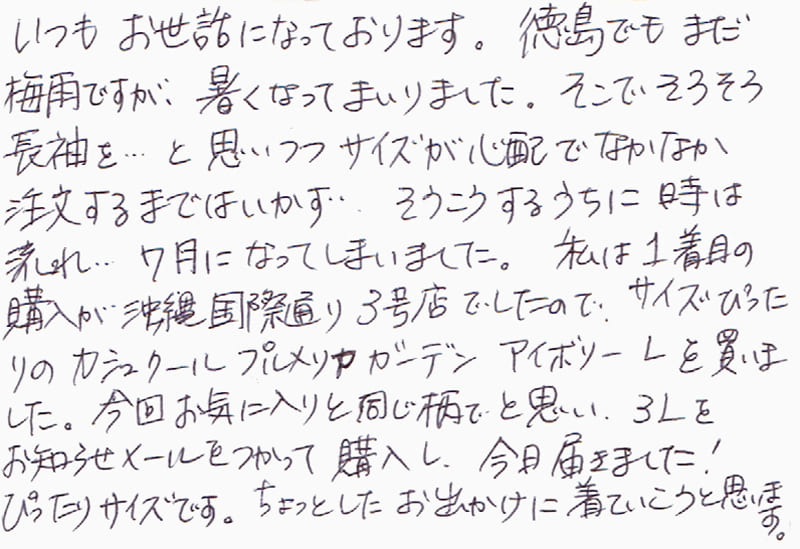 いつも お世話になっております。 徳島でも まだ
梅雨ですが、 暑くなってまいりました。 そこで そろそろ
長袖を… と 思いつつ サイズが心配で なかなか
注文するまではいかず… そうこうするうちに 時は
流れ… 7月になってしまいました。 私は 1着目の
購入が 沖縄国際通り 3号店でしたので、 サイズぴった
りの カシュクール プルメリヤ ガーデン アイボリー Lを 買いま
した。 今回 お気に入りと 同じ柄で と思い、 3Lを
お知らせメールをつかって 購入し、 今日 届きました!
ぴったりサイズです。 ちょっとした お出かけに 着ていこうと思います。